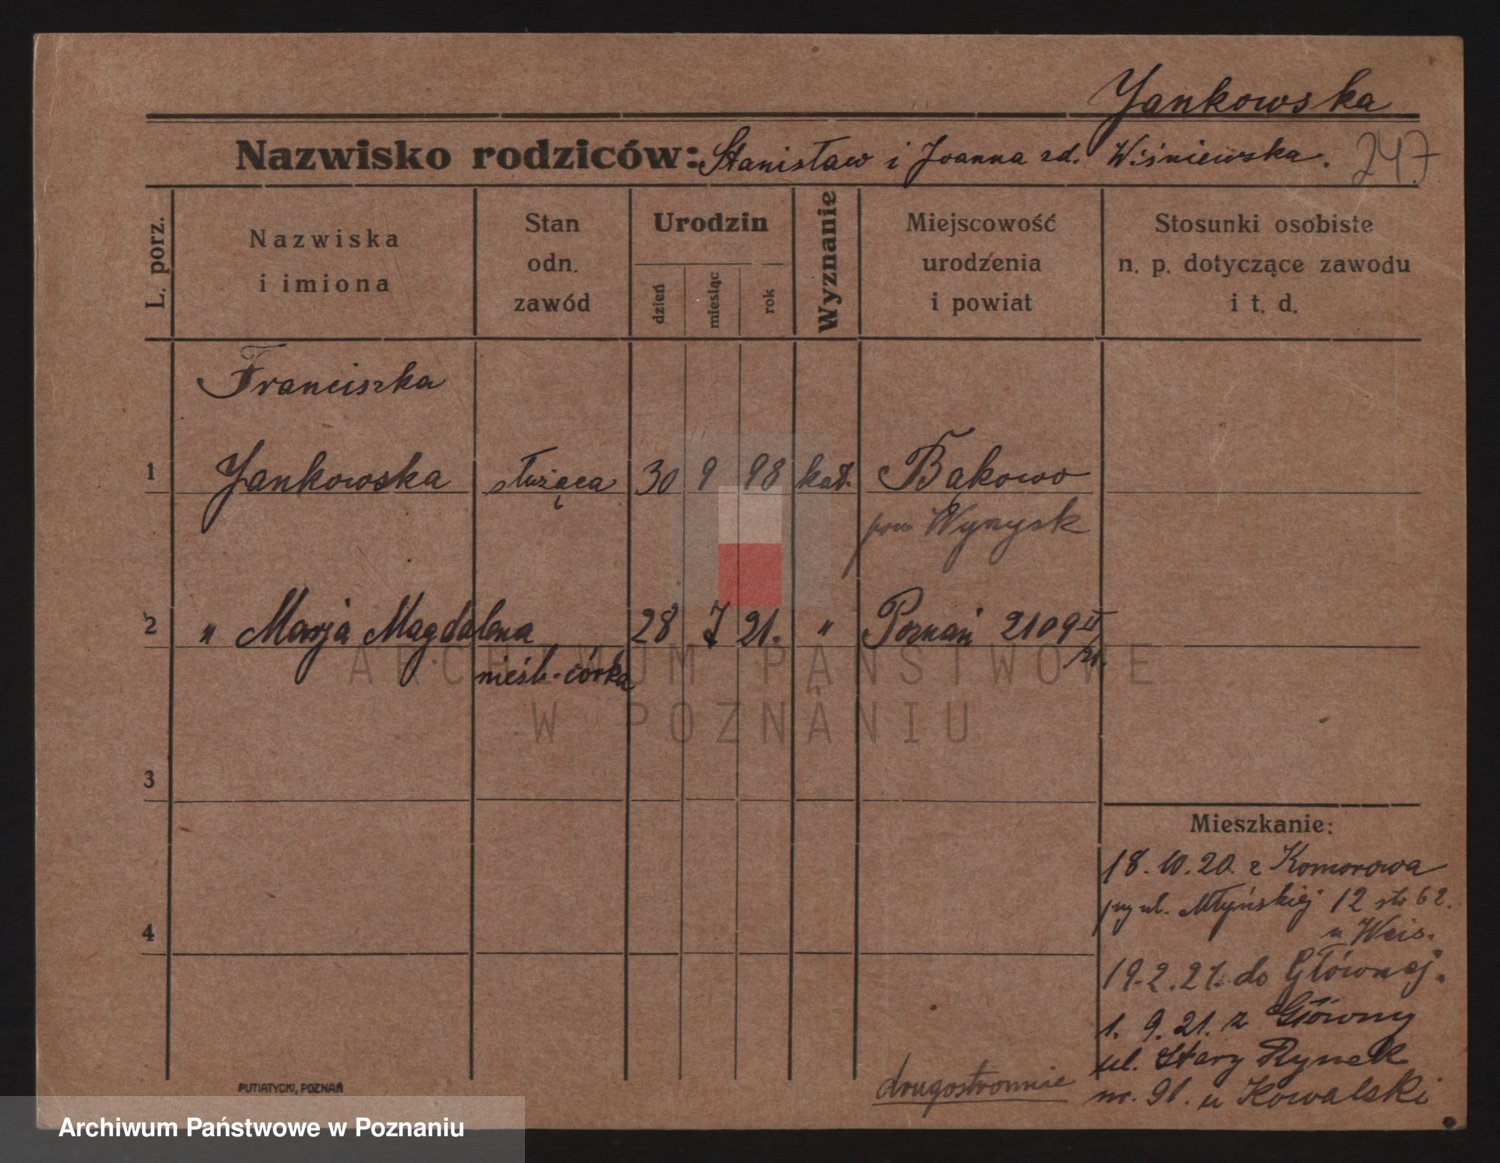 Jankowska
Nazwisko rodziców: Stanisław i Joanna zd. Wiśniewska.
247
L. porz.
Nazwiska
i imiona
Stan
odn.
zawód
Urodzin
dzień
miesiąc
rok
Wyznanie
Miejscowość
urodzenia
i powiat
Stosunki osobiste
n. p. dotyczące zawodu
i t. d.
Franciszka
1 Jankowska służąca 30 9 98 kat. Bąkowo
pow Wyrzysk
2 " Marja Magdalena 28 7 21. " Poznań 2109 II
/21.
nieśl-córka
3
4
Mieszkanie:
18.10.20. z Komorowa
przy ul. Młyńskiej 12 str 62.
u Weis.
19.2.21. do Głównej.
1. 9.21. z Główny
ul. Stary Rynek
nr. 91. u Kowalski
drugostronnie
PUTIATYCKI, POZNAŃ
ARCHIWUM PAŃSTWOWE
W POZNANIU
Archiwum Państwowe w Poznaniu